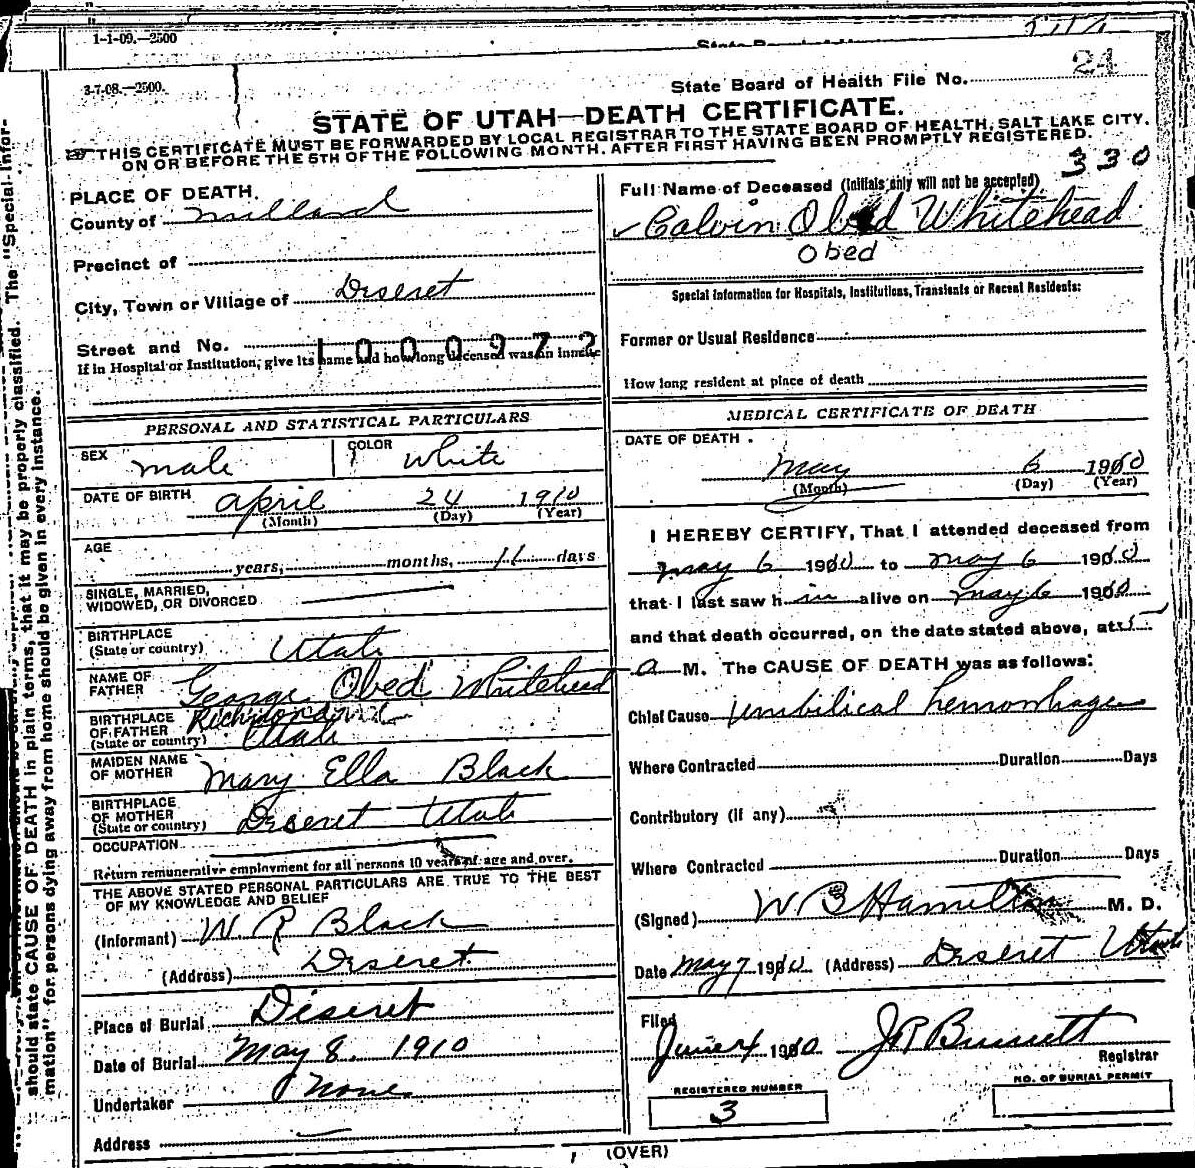 1-1-09.—2500
3-7-08.—2500.
State Board of Health File No. 24
STATE OF UTAH—DEATH CERTIFICATE.
THIS CERTIFICATE MUST BE FORWARDED BY LOCAL REGISTRAR TO THE STATE BOARD OF HEALTH, SALT LAKE CITY,
ON OR BEFORE THE 5TH OF THE FOLLOWING MONTH, AFTER FIRST HAVING BEEN PROMPTLY REGISTERED.
330
PLACE OF DEATH.
County of Millard
Precinct of
City, Town or Village of Deseret
Street and No.
1000972
If in Hospital or Institution, give its name and how long deceased was an inmate
Full Name of Deceased (Initials only will not be accepted)
Calvin Obed Whitehead
Obed
Special Information for Hospitals, Institutions, Transients or Recent Residents:
Former or Usual Residence
How long resident at place of death
PERSONAL AND STATISTICAL PARTICULARS
SEX male
COLOR White
DATE OF BIRTH April 24 1910
(Month) (Day) (Year)
AGE
years, months, 11 days
SINGLE, MARRIED,
WIDOWED, OR DIVORCED
BIRTHPLACE
(State or country) Utah
NAME OF
FATHER George Obed Whitehead
BIRTHPLACE
OF FATHER Richmond
(State or country) Utah
MAIDEN NAME
OF MOTHER Mary Ella Black
BIRTHPLACE
OF MOTHER
(State or country) Deseret Utah
OCCUPATION
Return remunerative employment for all persons 10 years of age and over.
THE ABOVE STATED PERSONAL PARTICULARS ARE TRUE TO THE BEST
OF MY KNOWLEDGE AND BELIEF
(Informant) W R Black
(Address) Deseret
Place of Burial Deseret
Date of Burial May 8. 1910
Undertaker None
Address
MEDICAL CERTIFICATE OF DEATH
DATE OF DEATH.
May 6 1910
(Month) (Day) (Year)
I HEREBY CERTIFY, That I attended deceased from
May 6 1910 to May 6 1910
that I last saw h im alive on May 6 1910
and that death occurred, on the date stated above, at 5
a M. The CAUSE OF DEATH was as follows:
Chief Cause Umbilical hemorrhage
Where Contracted Duration Days
Contributory (if any)
Where Contracted Duration Days
(Signed) W B Hamilton M. D.
Date May 7 1910 (Address) Deseret Utah
Filed
June 4 1910 J R Bennett
Registrar
REGISTERED NUMBER
3
NO. OF BURIAL PERMIT
(OVER)
should state CAUSE OF DEATH in plain terms, that it may be properly classified. The "Special Infor-
mation" for persons dying away from home should be given in every instance.